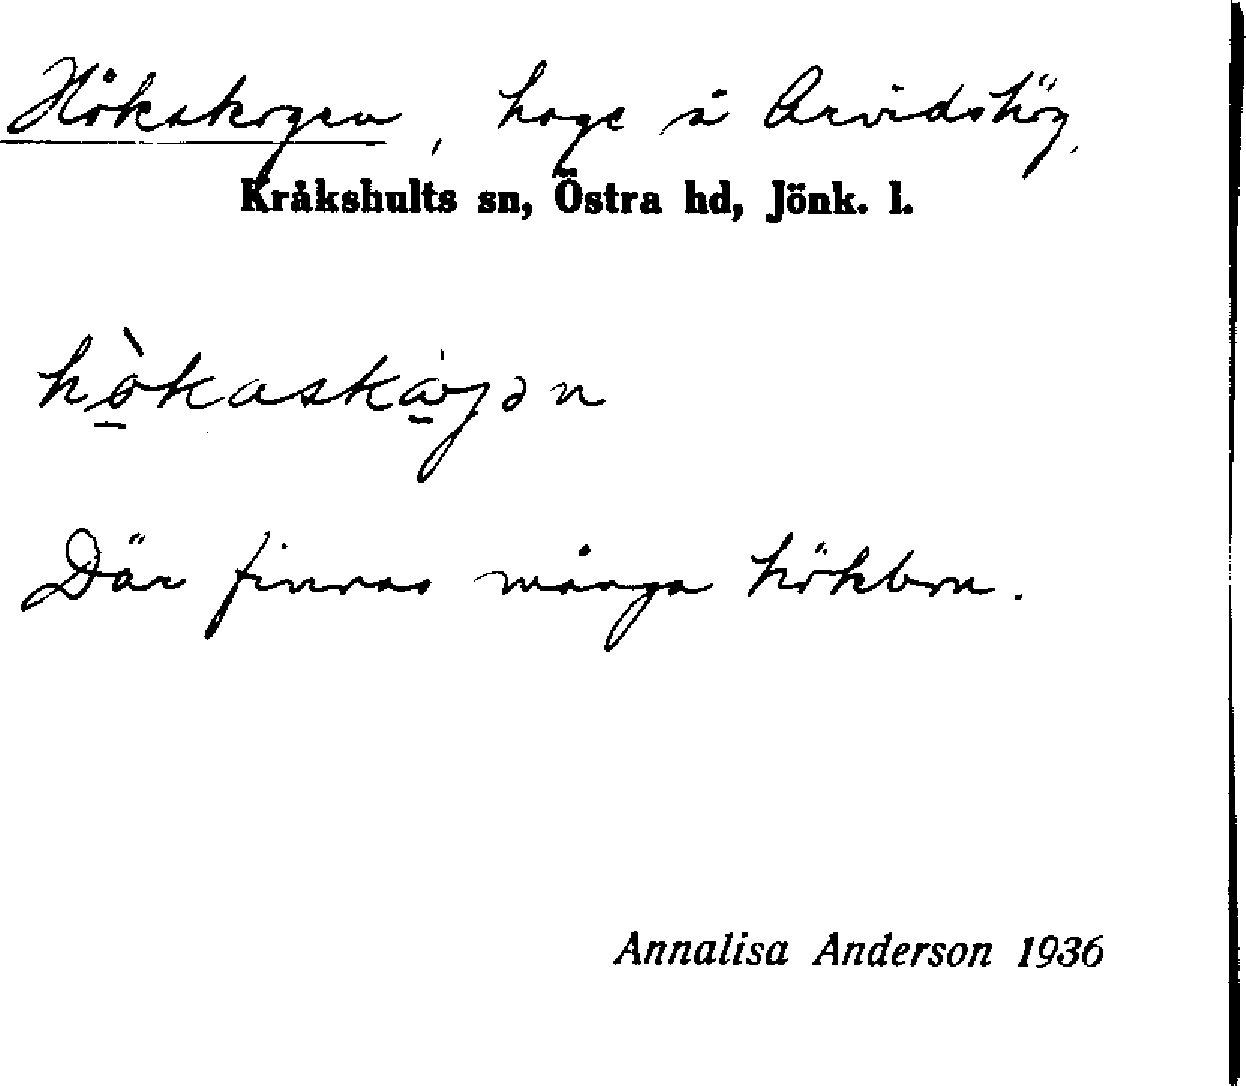 Hökaskogen, hage å Arvidshög,
Kråkshults sn, Östra hd, Jönk. l.
hö̀kaskåvgən
Där finnas många hökbon.
Annalisa Anderson 1936